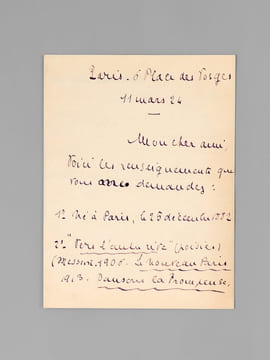 Paris. 6 Place des Vosges
11 mars 24
Mon cher ami,
Voici les renseignements que
vous avez demandés :
1° Né à Paris, le 26 décembre 1882
2° "Vers l'aventure" (poésies)
(Messein, 1906. Le Nouveau Paris
1913. Dansons la Trompeuse,